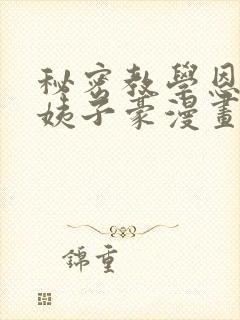 秘密教學恩
姨子豪漫畫
錦重